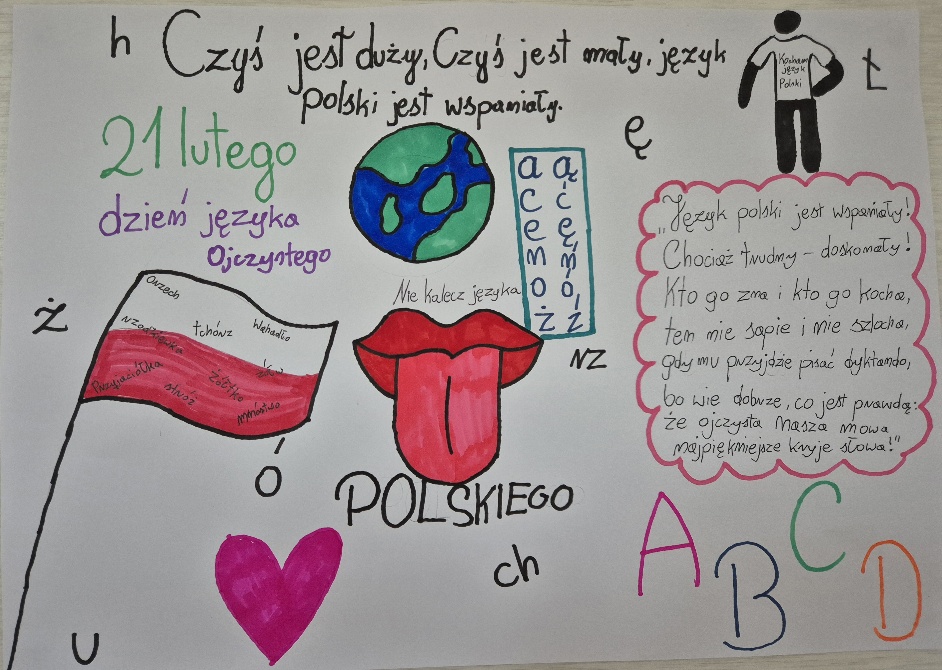 h
Czyś jest duży, Czyś jest mały, język
polski jest wspaniały.
Kocham
język
Polski
Ł
21 lutego
dzień języka
Ojczystego
Ę
a ą
c ć
e ę
n ń
o ó
ż ź
„Język polski jest wspaniały!
Chociaż trudny – doskonały!
Kto go zna i kto go kocha,
ten nie sapie i nie szlocha,
gdy mu przyjdzie pisać dyktando,
bo wie dobrze, co jest prawdą:
że ojczysta nasza mowa
najpiękniejsze kryje słowa!"
Ż
Orzech
tchórz
Wahadło
Przyjaciółka
stróż
żółtko
mnóstwo
Nie kalecz języka
rz
POLSKIEGO
Ó
ch
U
A B C D